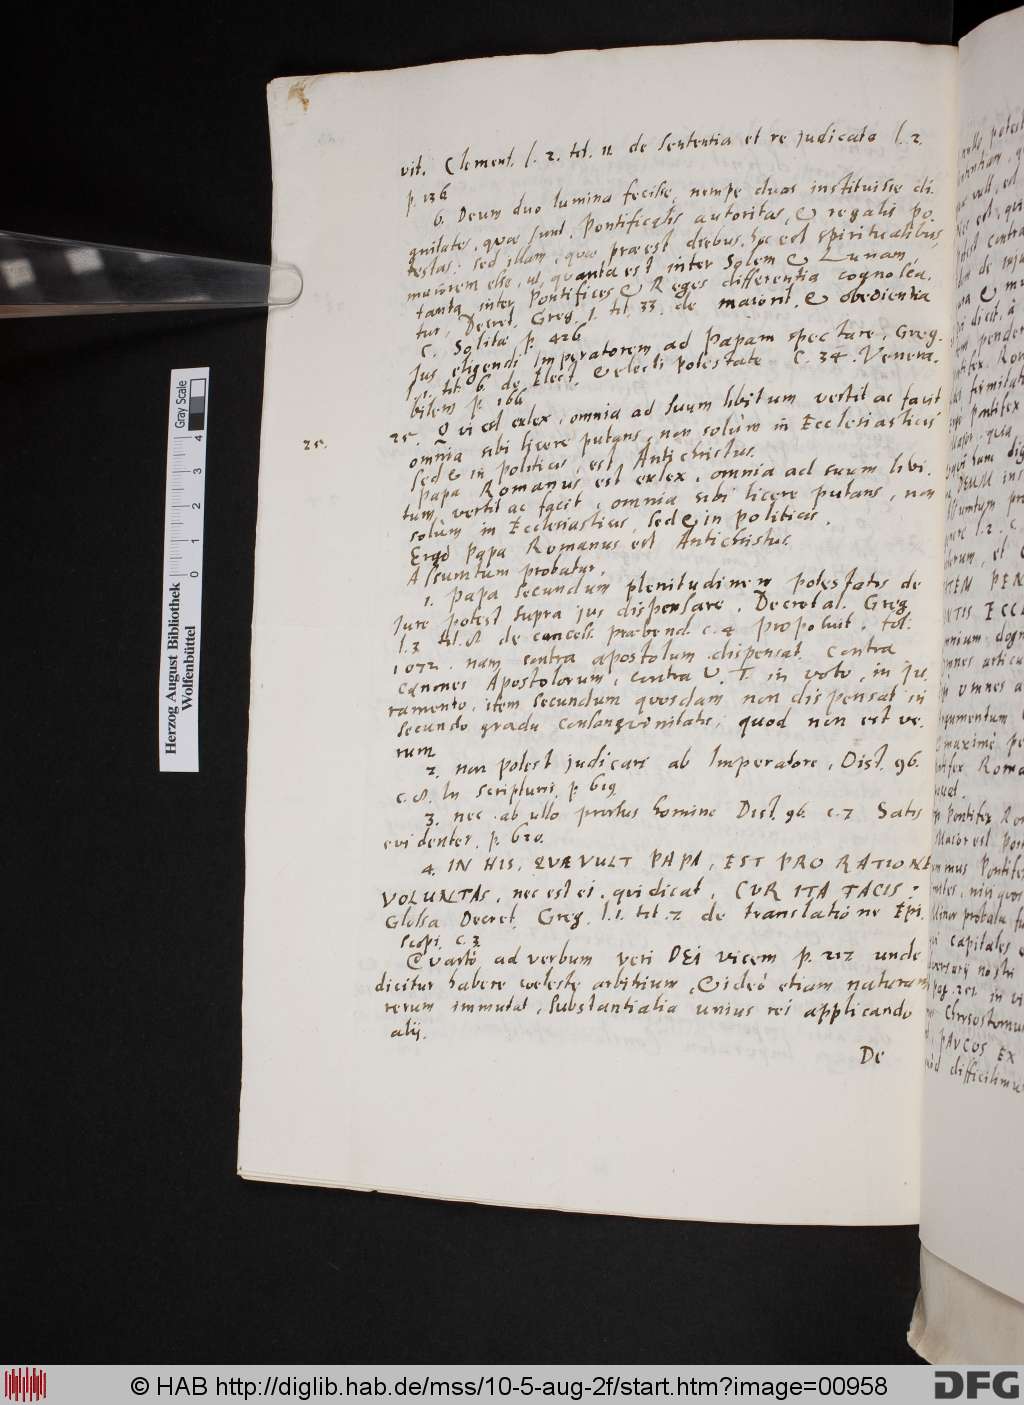 vit. Clement. l. 2. tit. 11 de Sententia et re judicata l. 2.
p. 136
6. Deum duo lumina fecisse, nempe duas instituisse di.
gnitates, quae sunt, Pontificalis autoritas, & regalis po.
testas: sed illam, quae praeest diebus, hoc est spiritualibus,
maiorem esse, ut, quanta est inter Solem & Lunam,
tanta inter Pontifices & Reges differentia cognosca.
tur, Decret. Greg. l. tit. 33. de maiorit. & obedientia
C. Solitae p. 426
Jus eligendi Imperatorem ad Papam spectare, Greg.
l. tit. 6. de Elect. & electi potestate C. 34. Venera.
bilem p. 166
25.
25. Qvi est exlex, omnia ad suum libitum vertit ac facit
omnia sibi licere putans, non solùm in Ecclesiasticis
sed & in politicis, est Antichristus.
Papa Romanus est exlex, omnia ad suum libi.
tum, vertit ac facit, omnia sibi licere putans, non
solùm in Ecclesiasticis, sed & in politicis.
Ergò Papa Romanus est Antichristus.
Assumtum probatur.
1. Papa secundum plenitudinem potestatis de
Jure potest supra jus dispensare. Decretal. Greg.
l. 3 tit. 8. de concess. praebend. c. 4 proposuit. fol.
1072. nam contra apostolum dispensat contra
canones Apostolorum, contra V. T. in voto, in ju.
ramento, item secundum quosdam non dispensat in
secundo gradu consangvinitatis, quod non est ve.
rum
2. non potest judicari ab Imperatore, Dist. 96.
c. 8. In scripturis, p. 619
3. nec ab ullo prorsus homine Dist. 96. c. 7 Satis
evidenter, p. 620.
4. IN HIS, QVAE VULT PAPA, EST PRO RATIONE
VOLUNTAS, nec est ei, qui dicat, CUR ITA FACIS:
Glossa Decret. Greg. l. 1. tit. 7 de translatione Epi.
scopi c. 3.
Qvartò ad verbum veri DEi vicem p. 217 unde
dicitur habere coeleste arbitrium, & ideò etiam naturam
rerum immutat, substantialia unius rei applicando
alij.
De
Herzog August Bibliothek
Wolfenbüttel
0 1 2 3 4
Gray Scale
© HAB http://diglib.hab.de/mss/10-5-aug-2f/start.htm?image=00958
DFG